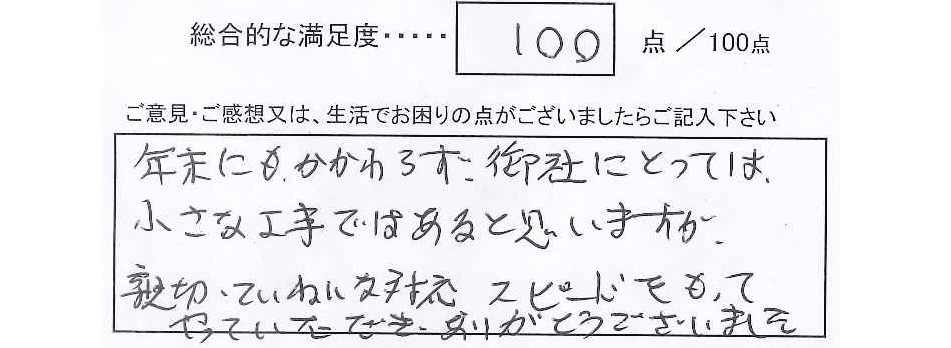 総合的な満足度・・・・・ 100 点 ／100点
ご意見・ご感想又は、生活でお困りの点がございましたらご記入下さい
年末にもかかわらず、御社にとっては、
小さな工事ではあると思いますが、
親切、ていねいな対応 スピードをもって
やっていただき、ありがとうございました